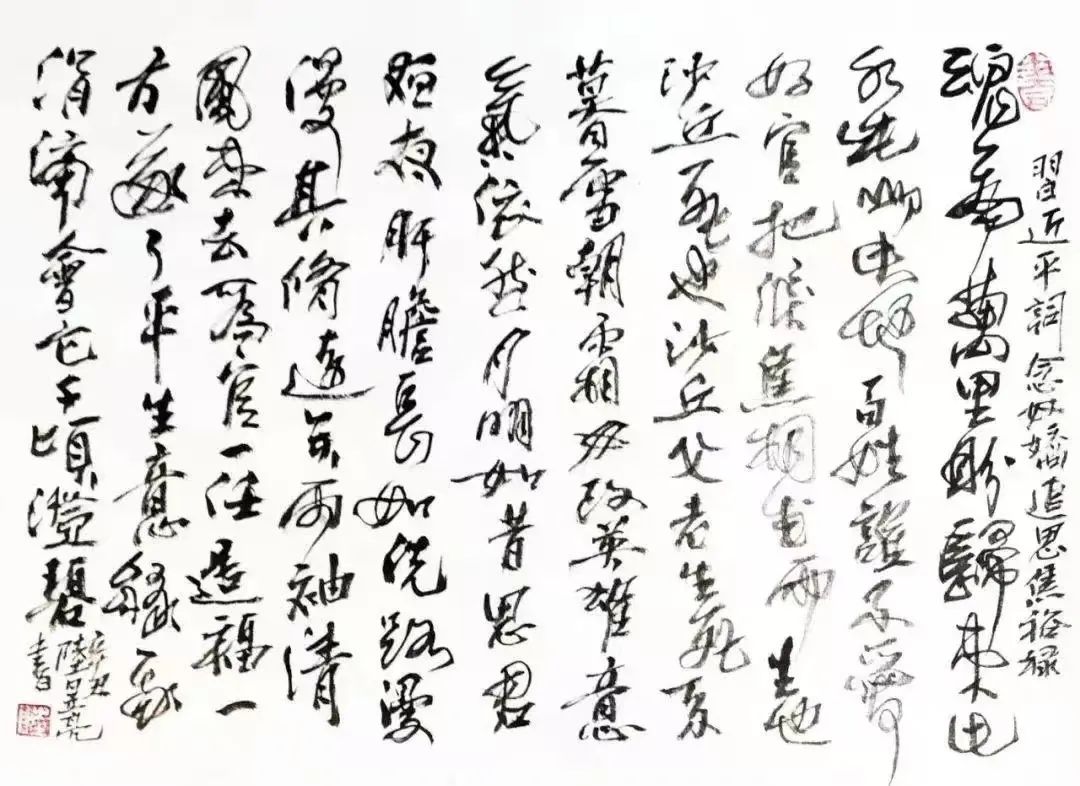 習近平詞念奴嬌追思焦裕禄
魂飛萬里盼歸來此
水此山此地百姓誰不愛
好官把淚焦桐成雨生也
沙丘死也沙丘父老生死系
暮雪朝霜毋改英雄意
氣依然月明如昔思君
夜夜肝膽長如洗路漫
漫其脩遠矣兩袖清
風來去為官一任造福一
方遂了平生意綠我
涓滴會它千頃澄碧
辛丑
陸
書